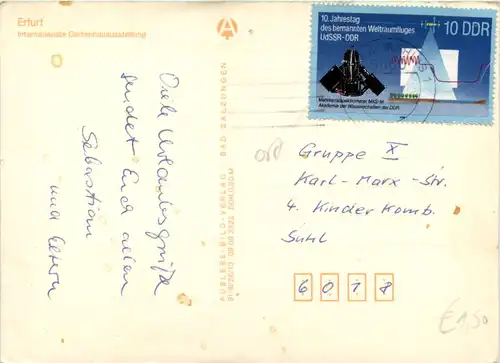 Erfurt
Internationale Gartenbauausstellung
Viele Urlaubsgrüße
sendet Euch allen
Sebastian
und Eltern
AUSLESE-BILD-VERLAG BAD SALZUNGEN
10. Jahrestag
des bemannten Weltraumfluges
UdSSR-DDR
10 DDR
Multispektralkamera MKS-M
Akademie der Wissenschaften der DDR
Gruppe X
Karl-Marx-Str.
4. Kinderkomb.
Suhl
6018
€1,50